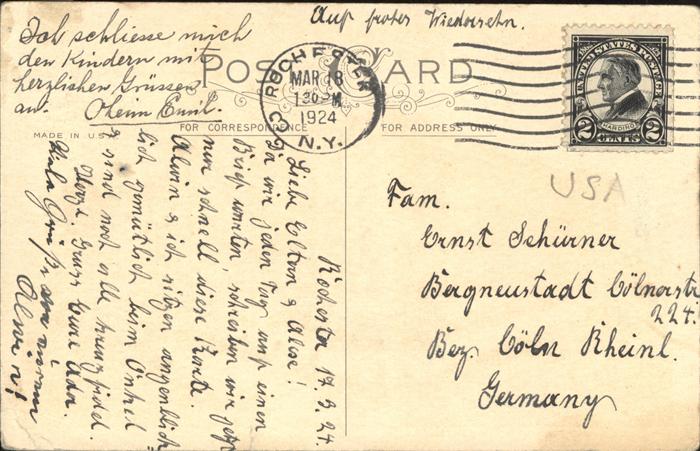 Auf frohes Wiedersehn.
Ich schliesse mich
den Kindern mit
herzlichen Grüssen
an. Oheim Emil.
POST CARD
ROCHESTER
MAR 18
130 PM
1924
N.Y.
UNITED STATES POSTAGE
HARDING
2 CENTS 2
MADE IN U.S.A.
FOR CORRESPONDENCE
FOR ADDRESS ONLY
USA
Rochester 17.3.24.
Liebe Eltern & Alese!
Da wir jeden Tag auf einen
Brief warten, schreiben wir jetzt
nur schnell diese Karte.
Alwin & ich sitzen augenblick
lich gemütlich beim Onkel
& sind noch alle kreuzfidel.
Herzl. Gruss Eure Ada.
Viele Grüße von eurem
Alwin!
Fam.
Ernst Schürner
Bergneustadt Cölnerstr
224.
Bez. Cöln Rheinl.
Germany